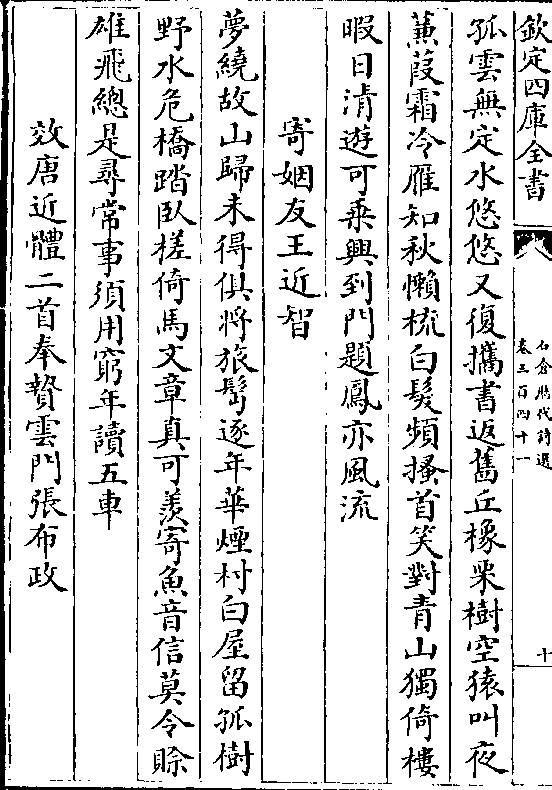 欽定四庫全書
石倉歷代詩選
卷三百四十一
十
孤雲無定水悠悠又復攜書返舊丘橡栗樹空猿叫夜
蒹葭霜冷雁知秋懶梳白髮頻搔首笑對青山獨倚樓
暇日清遊可乗興到門題鳳亦風流
寄姻友王近智
夢繞故山歸未得俱將旅鬢逐年華煙村白屋留孤樹
野水危橋踏臥槎倚馬文章真可羨寄魚音信莫令賒
雄飛總是尋常事須用窮年讀五車
效唐近體二首奉贅雲門張布政